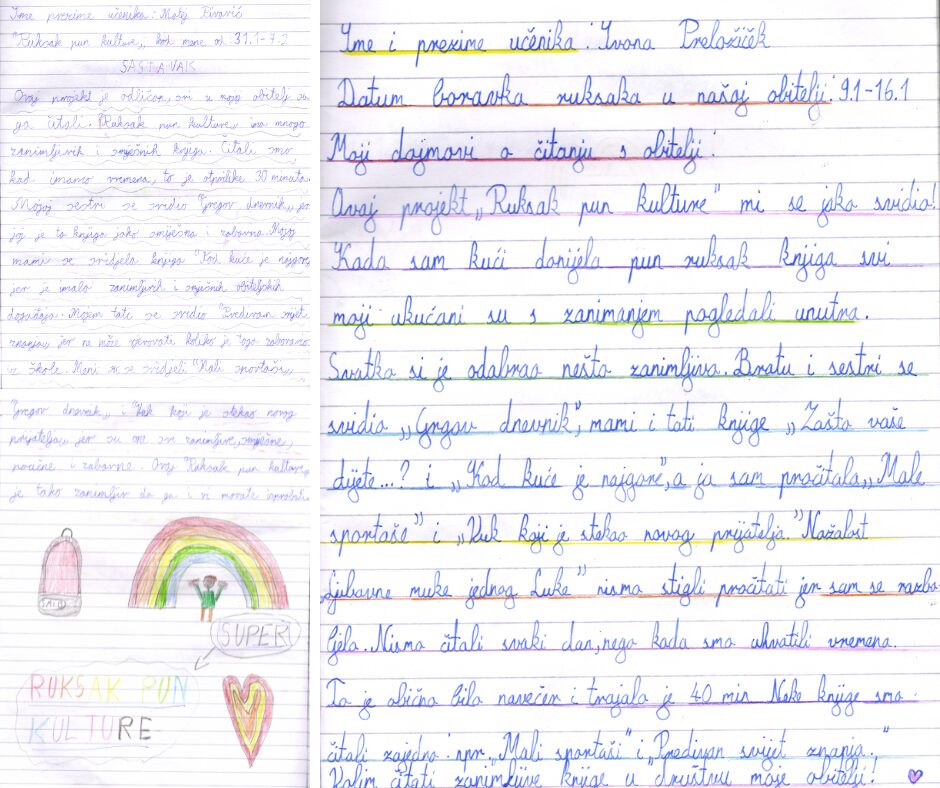 Ime prezime učenika: Matej Pirović
"Ruksak pun kulture„ kod mene od 31.1-7.2
SASTAVAK
Ovaj projekt je odličan, svi u mojoj obitelji su
ga čitali. "Ruksak pun kulture„ ima mnogo
zanimljivih i smješnih knjiga. Čitali smo
kad imamo vremena, to je otprilike 30 minuta.
Mojoj sestri se svidio "Gregov dnevnik„ jer
joj je to knjiga jako smiješna i zabavna. Mojoj
mami se svidjela knjiga "Kod kuće je najgore„
jer je imala zanimljivih i smješnih obiteljskih
događaja. Mojem tati se svidio "Predivan svijet
znanja„ jer ne može vjerovati koliko je toga zaboravio
iz škole. Meni su se svidjeli "Mali sportaši„
"Gregov dnevnik„ i "Vuk koji je stekao novog
prijatelja„ jer su one sve zanimljive, smješne,
poučne i zabavne. Ovaj "Ruksak pun kulture„
je tako zanimljiv da ga i vi morate isprobati.
SUPER
RUKSAK PUN
KULTURE
Ime i prezime učenika: Ivona Preložiček
Datum boravka ruksaka u našoj obitelji: 9.1-16.1
Moji dojmovi o čitanju s obitelji:
Ovaj projekt „Ruksak pun kulture" mi se jako svidio!
Kada sam kući donijela pun ruksak knjiga svi
moji ukućani su s zanimanjem pogledali unutra.
Svatko si je odabrao nešto zanimljivo. Bratu i sestri se
svidio „Grgov dnevnik", mami i tati knjige „Zašto vaše
dijete...? i „Kod kuće je najgore", a ja sam pročitala „Male
sportaše" i „Vuk koji je stekao novog prijatelja." Nažalost
„Ljubavne muke jednog Luke" nismo stigli pročitati jer sam se razbo-
ljela. Nismo čitali svaki dan, nego kada smo uhvatili vremena.
To je obično bilo navečer i trajalo je 40 min. Neke knjige smo
čitali zajedno: npr. „Mali sportaši" i „Predivan svijet znanja."
Volim čitati zanimljive knjige u društvu moje obitelji!